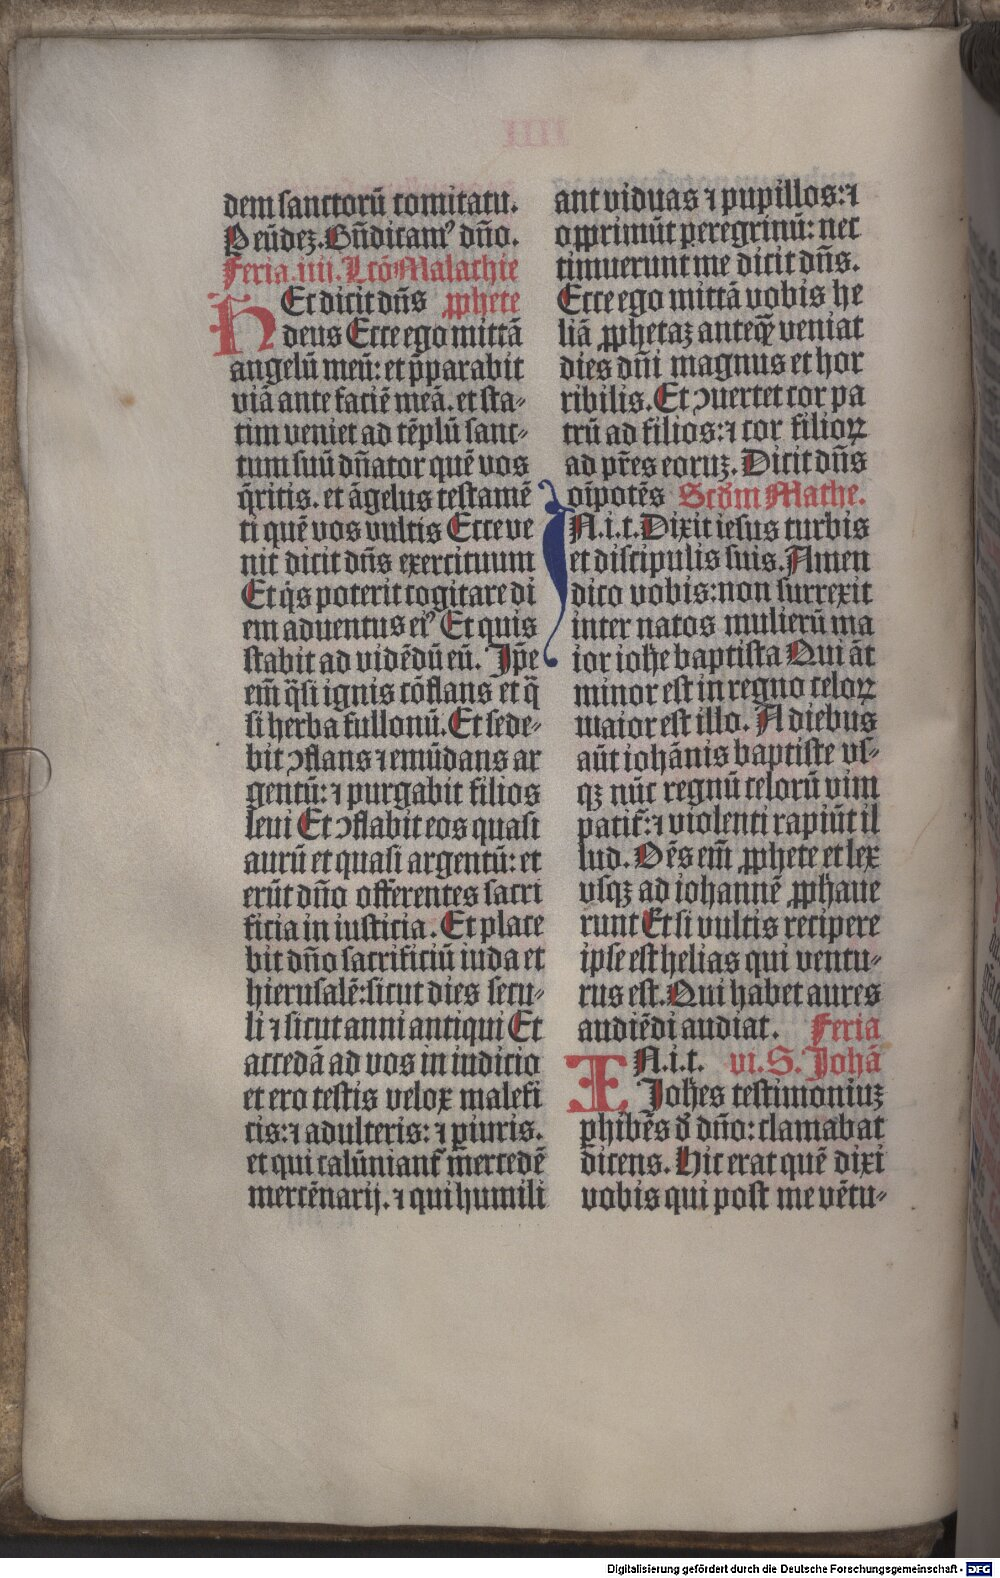 dem sanctorū comitatu.
P eūdeʒ. Bn̄dicamꝰ dn̄o.
Feria .iiii. Lcō Malachie
Ec dicit dn̄s ꝓphete
H deus Ecce ego mittā
angelū meū: et p̄parabit
viā ante faciē meā. et sta⸗
tim veniet ad tēplū sanc⸗
tum suū dn̄ator quē vos
q̄ritis. et āgelus testamē
ti quē vos vultis Ecce ve
nit dicit dn̄s exercituum
Et q̇s poterit cogitare di
em aduentus eiꝰ Et quis
stabit ad vidēdū eū. Ip̄e
em̄ q̄si ignis cōflans et q̄
si herba fullonū. Et sede⸗
bit ɔflans ⁊ emūdans ar
gentū: ⁊ purgabit filios
leui Et ɔflabit eos quasi
aurū et quasi argentū: et
erūt dn̄o offerentes sacri
ficia in iusticia. Et place
bit dn̄o sacrificiū iuda et
hierusalē: sicut dies secu⸗
li ⁊ sicut anni antiqui Et
accedā ad vos in iudicio
et ero testis velox malefi
cis: ⁊ adulteris: ⁊ ꝑiuris.
et qui calūnianť mercedē
mercēnarij. ⁊ qui humili
ant viduas ⁊ pupillos: ⁊
opprimūt peregrinū: nec
timuerunt me dicit dn̄s.
Ecce ego mittā vobis he
liā ꝓphetaʒ anteqꝫ veniat
dies dn̄i magnus et hor
ribilis. Et ɔuertet cor pa
trū ad filios: ⁊ cor filioꝝ
ad pr̄es eoruʒ. Dicit dn̄s
oīpotēs Scd̄m Mathe.
I N .i.t. Dixit iesus turbis
et discipulis suis. Amen
dico vobis: non surrexit
inter natos mulierū ma
ior iohe baptista Qui āt
minor est in regno celoꝝ
maior est illo. A diebus
aūt iohānis baptiste vs⸗
qꝫ nūc regnū celorū vim
patiť: ⁊ violenti rapiūt il
lud. Oēs em̄ ꝓphete et lex
vsqꝫ ad iohannē ꝓphaue
runt Et si vultis recipere
ipse est helias qui ventu⸗
rus est. Qui habet aures
audiēdi audiat. Feria
I N .i.t. vi. S. Johā
Joh̄es testimoniuʒ
phibēs d̄ dn̄o: clamabat
dicens. Hic erat quē dixi
vobis qui post me vētu⸗
Digitalisierung gefördert durch die Deutsche Forschungsgemeinschaft - DFG